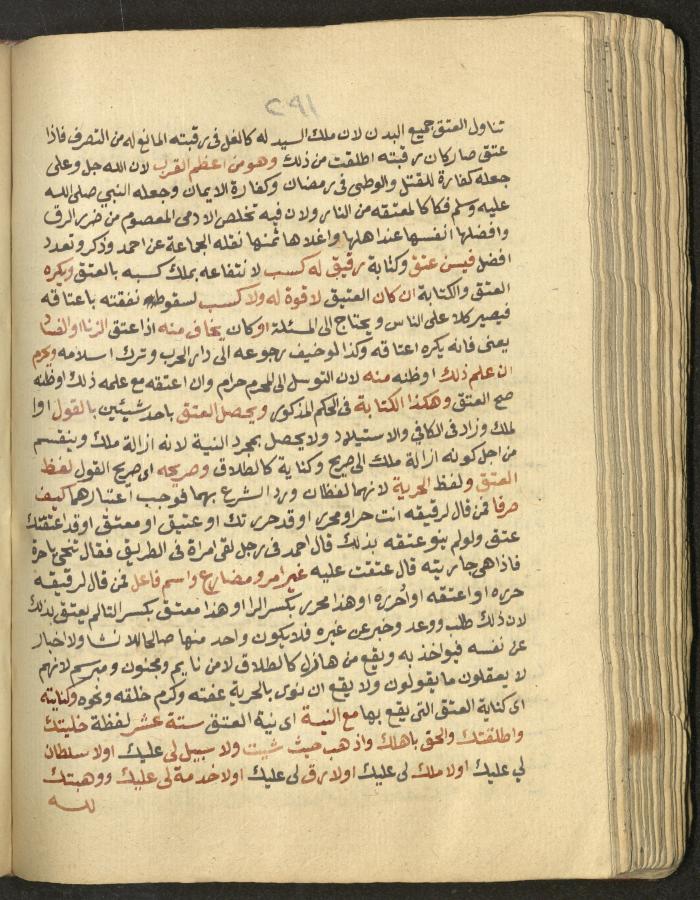 ٢٩١
تناول العتق جميع البدن لان ملك السيد له كالغل فى رقبته المانع له من التصرف فاذا
عتق صار كان رقبته اطلقت من ذلك وهو من اعظم القرب لان الله جل وعلى
جعله كفارة للقتل والوطى فى رمضان وكفارة الايمان وجعله النبي صلى الله
عليه وسلم فكاكا لمعتقه من النار ولان فيه تخلص الادمى المعصوم من ضرر الرق
وافضلها انفسها عند اهلها واغلاها ثمنها نقله الجماعة عن احمد وذكر وتعدد
افضل فيسن عتق وكتابة رقيق له كسب لانتفاعه بملك كسبه بالعتق ويكره
العتق والكتابة ان كان العتيق لا قوة له ولا كسب لسقوط نفقته باعتاقه
فيصير كلا على الناس ويحتاج الى المسئلة او كان يخاف منه اذا عتق الزنا او الفساد
يعنى فانه يكره اعتاقه وكذا لو خيف رجوعه الى دار الحرب وترك اسلامه ويحرم
ان علم ذلك او ظنه منه لان التوسل الى المحرم حرام وان اعتقه مع علمه ذلك او ظنه
صح العتق وهكذا الكتابة فى الحكم المذكور ويحصل العتق باحد شيئين بالقول او ا
لملك وزاد فى الكافي والاستيلاد ولا يحصل بمجرد النية لانه ازالة ملك وينقسم
من اجل كونه ازالة ملك الى صريح وكناية كالطلاق وصريحه اى صريح القول لفظ
العتق ولفظ الحرية لانهما لفظان ورد الشرع بهما فوجب اعتبارهما كيف
صرفا فمن قال لرقيقه انت حر او محرر او قد حررتك او عتيق او معتق او قد اعتقتك
عتق ولو لم ينو عتقه بذلك قال احمد فى رجل لقى امراة فى الطريق فقال تنحي ياحرة
فاذا هى جاريته قال عتقت عليه غير امر ومضارع واسم فاعل فمن قال لرقيقه
حرره او اعتقه او احرره او هذا محرر بكسر الرا او هذا معتق بكسر التا لم يعتق بذلك
لان ذلك طلب ووعد وخبر عن غيره فلا يكون واحد منها صالحا للانشا ولا اخبار
عن نفسه فيواخذ به ويقع من هازل كالطلاق لا من نايم ومجنون ومبرسم لانهم
لا يعقلون ما يقولون ولا يقع ان نوى بالحرية عفته وكرم خلقه ونحوه وكنايته
اى كناية العتق التى يقع بها مع النية اى نية العتق ستة عشر لفظة خليتك
واطلقتك والحق باهلك واذهب حيث شيت ولا سبيل لى عليك او لا سلطان
لي عليك او لا ملك لى عليك او لا رق لى عليك او لا خدمة لى عليك ووهبتك
لله